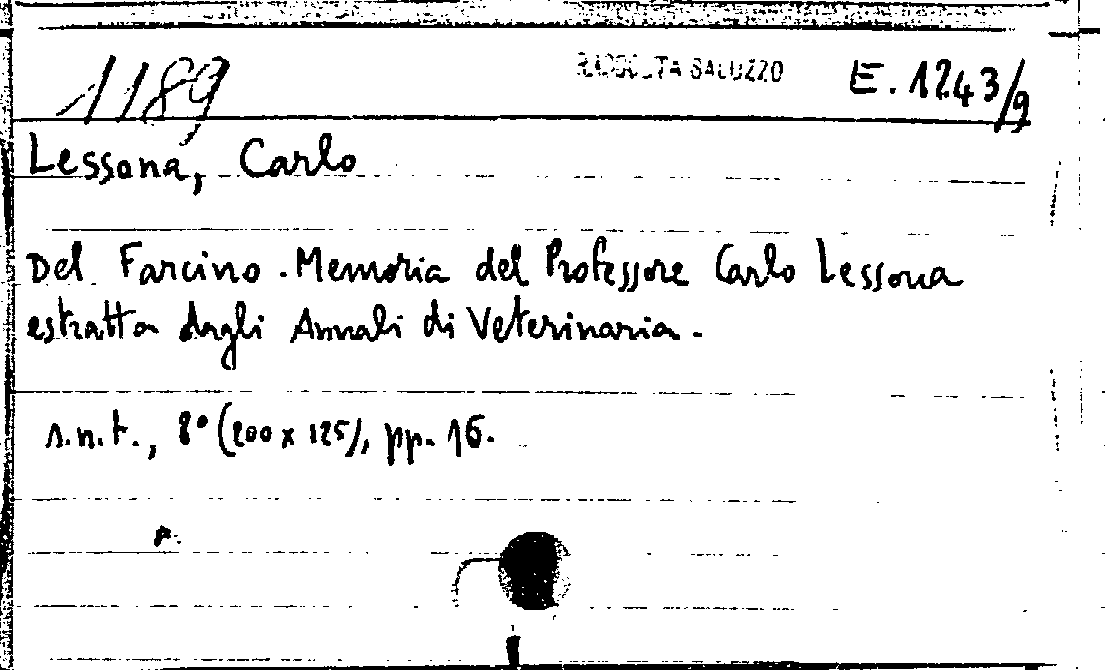 1189 RACCOLTA SALUZZO E. 1243/9
Lessona, Carlo
Del Farcino. Memoria del Professore Carlo Lessona
estratta dagli Annali di Veterinaria.
s.n.t., 8° (200 x 125), pp. 16.